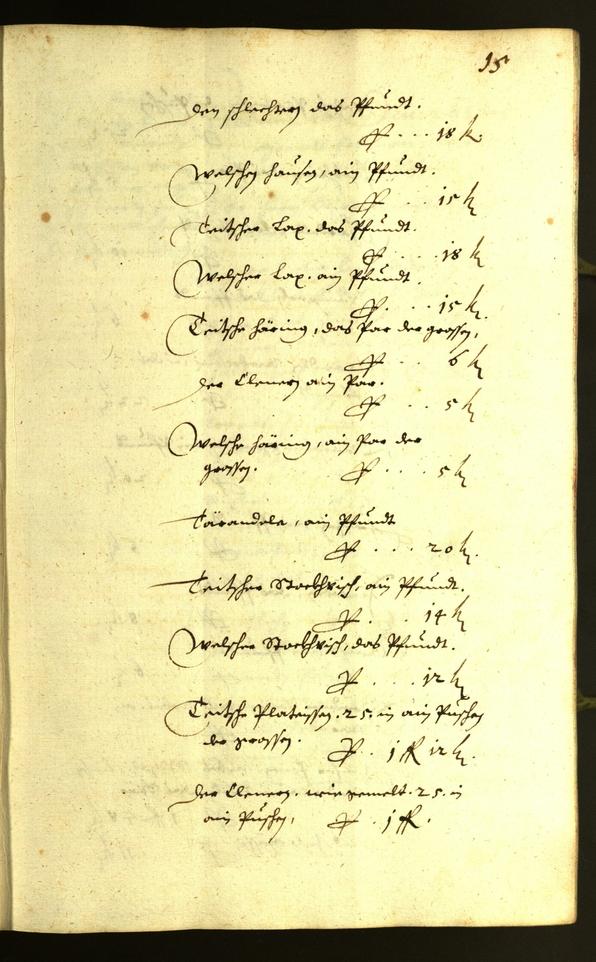 15
den schlechtern das Pfundt.
Pr . . . 18 kr.
Welschen hausen, ain Pfundt.
Pr . . . 15 kr
Teitscher Lax. das Pfundt.
Pr . . . 18 kr
Welscher Lax. ain Pfundt.
Pr. . . . 15 kr.
Teitsche häring, das Par der grossen,
Pr . . . 6 kr
der Clenern ain Par.
Pr . . . 5 kr
Welsche häring, ain Par der
grossen. Pr . . . 5 kr
Tärandela, ain Pfundt
Pr . . . 20 kr.
Teitscher Stockhvisch, ain Pfundt.
Pr. . . . 14 kr
Welscher Stockhvisch, das Pfundt.
Pr . . . 12 kr
Teitsche Plateissen. 25. in ain Puschen
der grossen. Pr . 1 fl 12 kr.
der Clenern. wie gemelt. 25. in
ain Puschen, Pr . 1 fl.